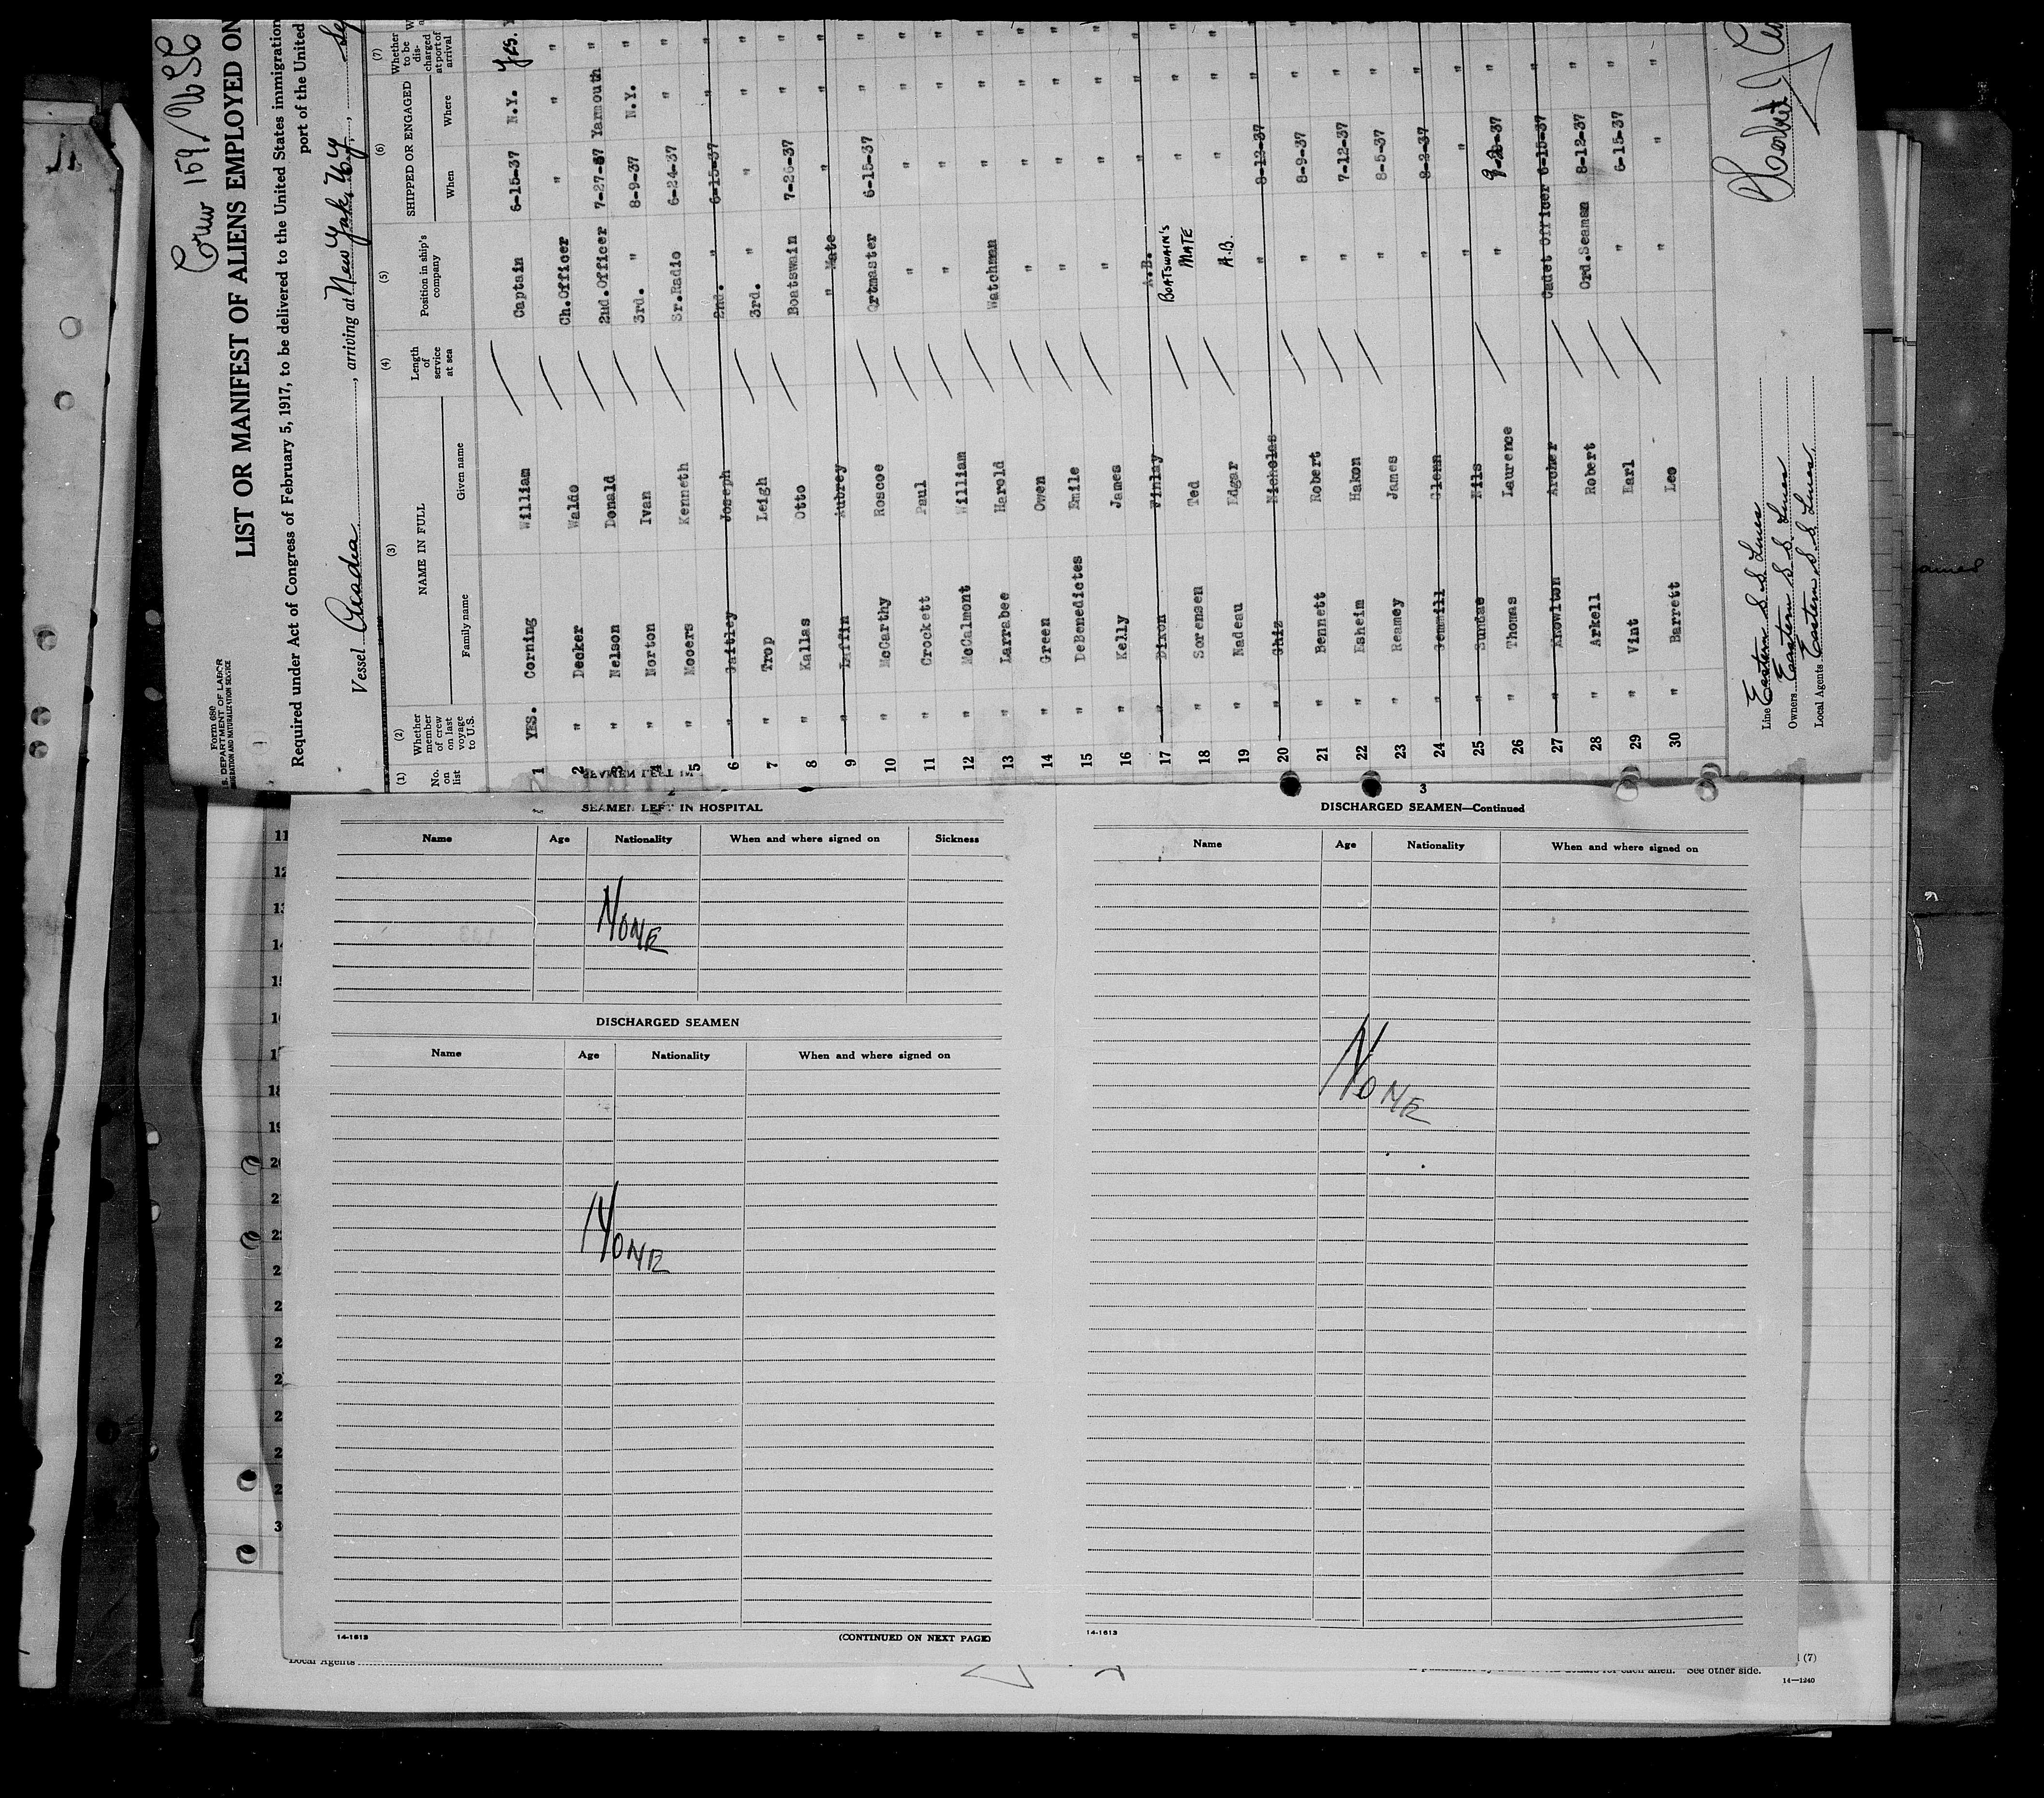 Crew 159/
Form 680
S. DEPARTMENT OF LABOR
IMMIGRATION AND NATURALIZATION SERVICE
LIST OR MANIFEST OF ALIENS EMPLOYED ON
Required under Act of Congress of February 5, 1917, to be delivered to the United States immigration
port of the United
Vessel Acadia, arriving at New York, N.Y.,
(1) (2) (3) (4) (5) (6) (7)
No. on list
Whether member of crew on last voyage to U.S.
NAME IN FULL
Family name Given name
Length of service at sea
Position in ship's company
SHIPPED OR ENGAGED
When Where
Whether to be discharged at port of arrival
1 YES. Corning William Captain 6-15-37 N.Y. Yes.
2 " Decker Waldo Ch.Officer " " "
3 " Nelson Donald 2nd.Officer 7-27-37 Yarmouth "
4 " Norton Ivan 3rd. " 8-9-37 N.Y. "
5 " Mooers Kenneth Sr.Radio 6-24-37 " "
6 " Gaitley Joseph 2nd. " 6-15-37 " "
7 " Trop Leigh 3rd. " " " "
8 " Kallas Otto Boatswain 7-26-37 " "
9 " Laffin Aubrey " Mate " " "
10 " McCarthy Roscoe Qrtmaster 6-15-37 " "
11 " Crockett Paul " " " "
12 " McCalmont William " " " "
13 " Larrabee Harold Watchman " " "
14 " Green Owen " " " "
15 " DeBenedictes Emile " " " "
16 " Kelly James " " " "
17 " Dixon Finlay A.B. " " "
18 " Sorensen Ted BOATSWAIN'S MATE " " "
19 " Nadeau Edgar A.B. " " "
20 " Ghiz Nicholas " 8-12-37 " "
21 " Bennett Robert " 8-9-37 " "
22 " Esheim Hakon " 7-12-37 " "
23 " Reamey James " 8-5-37 " "
24 " Gemmill Glenn " 8-2-37 " "
25 " Sundae Nils " " " "
26 " Thomas Laurence " " "
27 " Knowlton Archer Cadet Officer 6-15-37
28 " Arkell Robert Ord.Seaman 8-12-37 "
29 " Vint Earl " 6-15-37 "
30 " Barrett Leo " " "
Line Eastern S S Lines
Owners Eastern S S Lines
Local Agents Eastern S S Lines
SEAMEN LEFT IN
SEAMEN LEFT IN HOSPITAL
Name Age Nationality When and where signed on Sickness
NONE
DISCHARGED SEAMEN
Name Age Nationality When and where signed on
NONE
14-1613
(CONTINUED ON NEXT PAGE)
3
DISCHARGED SEAMEN—Continued
Name Age Nationality When and where signed on
NONE
14-1613
Local Agents
See other side.
(7)
14—1240